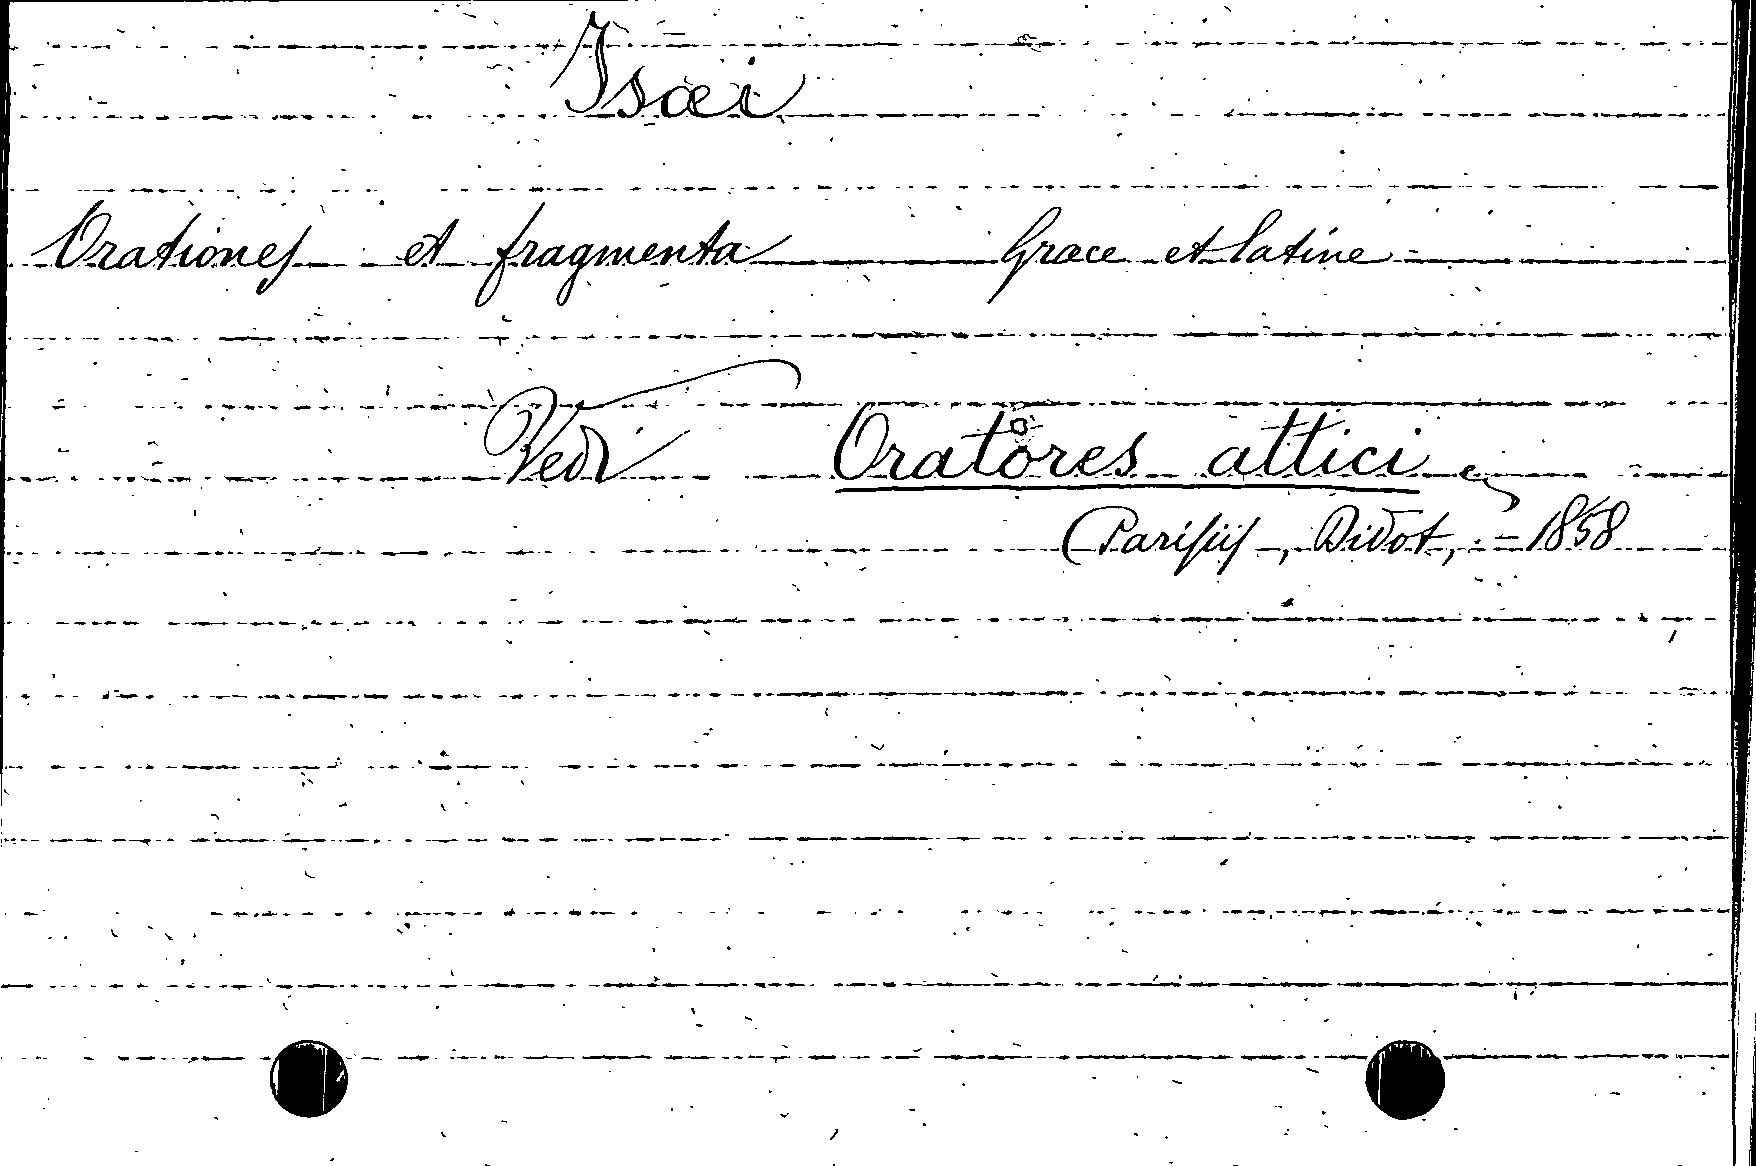 Isæi
Orationes et fragmenta Græce et latine
Vedi Oratores attici
(Parisiis, Didot, 1858